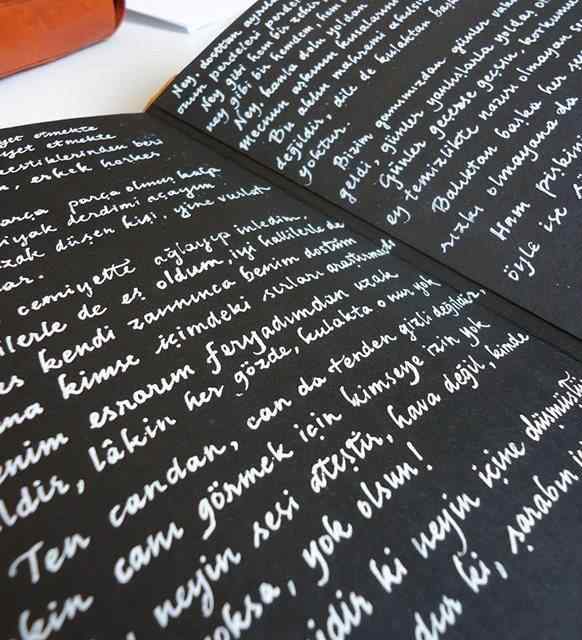 yet etmekte
yet etmekte
estiklerinden beri
n, erkek herkes
arça parça olmuş kalp
iyak derdimi açayım
zak düşen kişi, yine vuslat
ar.
cemiyette ağlayıp inledim,
ilerle de eş oldum, iyi hallilerle de
es kendi zannınca benim dostum
ma kimse içimdeki sırları araştırmadı
enim esrarım feryadımdan uzak
ldir, lâkin her gözde, kulakta o nur yok
Ten candan, can da tenden gizli değildir,
kin canı görmek için kimseye izin yok
neyin sesi ateştir, hava değil, kimde
oksa, yok olsun!
idir ki neyin içine düşmüştür
dur ki, şarabın
Ney, dosttan
perdeleri
Ney gibi hem bir zehir
ney gibi bir hemdem hem
Ney, kanla dolu yoldan
mecnun aşkının kıssalarını
Bu aklın mahremi akılsız
değildir, dile de kulaktan baş
yoktur.
Bizim gamımızdan günler vakit
geldi, günler yanışlarla yoldaş ol
Günler geçerse geçsin, korkumuz
ey temizlikte naziri olmayan
Balıktan başka her
rızkı olmayana da
Ham, pişkin
öyle ise